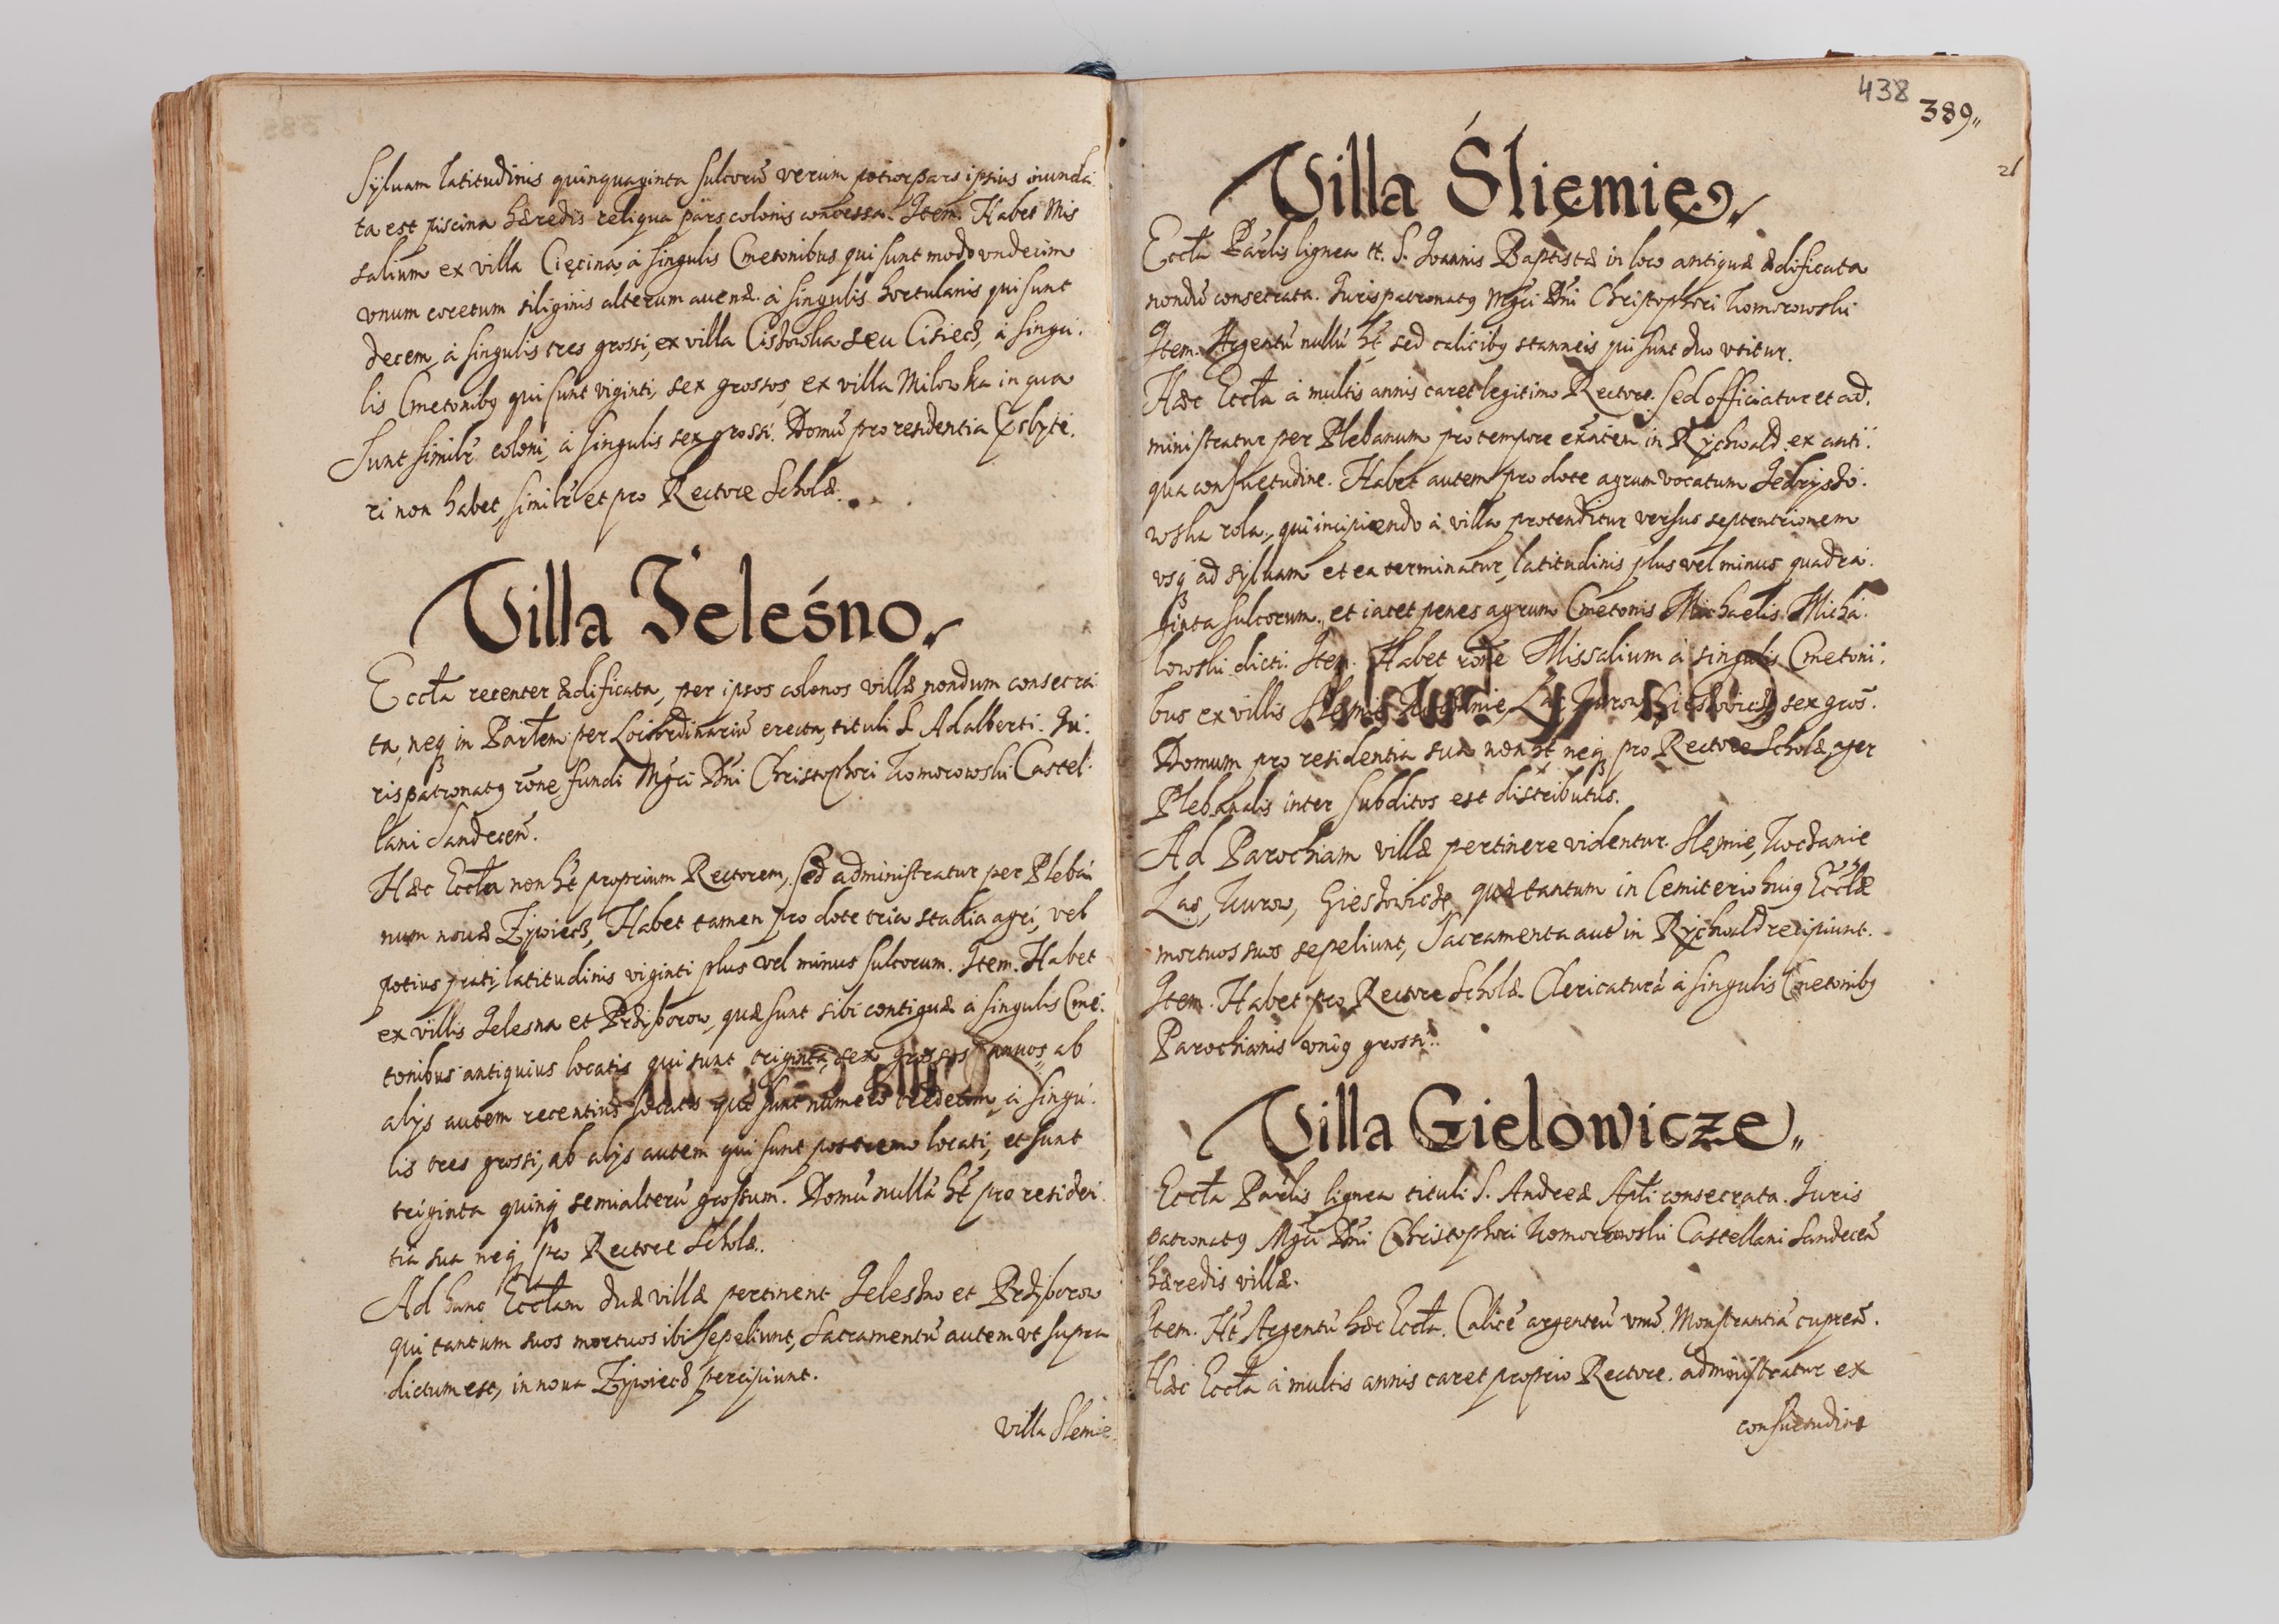 Syluam latitudinis quinquaginta sulcorũ verum potior pars ipsius inunda
ta est piscina hæredis reliqua pars colonis concessa. Item. Habet Mis
salium ex villa Cięcina, à singulis Cmetonibus qui sunt modo undecim
vnum coretum siliginis alterum auenæ. à singulis hortulanis qui sunt
decem, à singulis tres grossi, ex villa Cisowka seu Cisiecz, à singu.
lis Cmetonibꝫ qui sunt viginti, sex grossos, ex villa Milowka in qua
Sunt similr̃ coloni, à singulis sex grossi. Domũ pro residentia Prsbyte.
ri non habet, similr̃ et pro Rectore Scholæ.
Villa Jeleśno
Eccl̃a recenter ædificata, per ipsos colonos villæ, nondum consecra
ta, neqꝫ in Par̃lem per Loci ordinariũ erecta, tituli S. Adalberti. Ju.
rispatronatꝰ rõne fundi Mgci Dñi Christophori Komorowski Castel.
lani Sandeceñ.
Hæc Eccl̃a non ht̃ proprium Rectorem, sed administratur per Pleba
num nouæ Zÿwiecz, Habet tamen pro dote tria stadia agri, vel
potius prati, latitudinis viginti plus vel minus sulcorum. Item. Habet
ex villis Jelesna et Przÿborow, quæ sunt sibi contiguæ à singulis Cme.
tonibus antiquius locatis qui sunt triginta, sex grossos annuos, ab
alÿs autem recentius locatis qui sunt numero tredecim, à singu.
lis tres grossi, ab alÿs autem qui sunt postremo locati, et sunt
triginta quinqꝫ semialterũ grossum. Domũ nullã ht̃ pro residen
tia sua neqꝫ pro Rectore Scholæ.
Ad hanc Eccl̃am duæ villæ pertinent Jelesno et Przÿborow
qui tantum suos mortuos ibi sepeliunt, Sacramentũ autem vt supra
dictum est, in noua Zÿwiecz percipiunt.
Villa Slemie
438
389
Villa Śliemie
Eccl̃a Par̃lis lignea tt. S. Joannis Baptistæ in loco antiquæ ædificata
nondũ consecrata. Jurispatronatꝰ Mgci Dñi Christophori Komorowski
Item. Argentũ nullũ ht̃, sed calicibꝫ stanneis qui sunt duo vtitur.
Hæc Eccl̃a à multis annis caret legitimo Rectore. Sed officiatur et ad.
ministratur per Plebanum pro tempore exñtem in Rÿchwald, ex anti.
qua consuetudine. Habet autem pro dote agrum vocatum
rola, qui incipiendo à villa protenditur versus septentrionem
vsqꝫ ad syluam et ea terminatur, latitudinis plus vel minus quadra.
ginta sulcorum, et iacet penes agrum Cmetonis Michaelis Micha.
lowski dicti. Item. Habet rõne Missalium à singulis Cmetoni.
bus ex villis Slemie, Kocżanie, Las, Kurow, sex gros̃.
Domum pro residentia sua non ht̃ neqꝫ pro Rectore Scholæ, ager
Plebanalis inter subditos est distributus.
Ad Parochiam villæ pertinere videntur. Slemie, Koczanie
Las, Kurow, quæ tantum in Cemiterio huiꝰ Eccl̃æ
mortuos suos sepeliunt, Sacramenta aut̃ in Rÿchwald recipiunt.
Item. Habet pro Rectore Scholæ Clericaturã à singulis Cmetonibꝫ
Parochianis vniꝰ grossi.
Villa Gielowicze
Eccl̃a Par̃lis lignea tituli S. Andreæ Apl̃i consecrata. Juris
patronatꝰ Mgci Dñi Christophori Komorowski Castellani Sandeceñ
hæredis villæ.
Item. Ht̃ Argentũ hæc Eccl̃a. Calicẽ argenteũ vnũ. Monstrantiã cupreã.
Hæc Eccl̃a à multis annis caret proprio Rectore. administratur ex
consuetudine